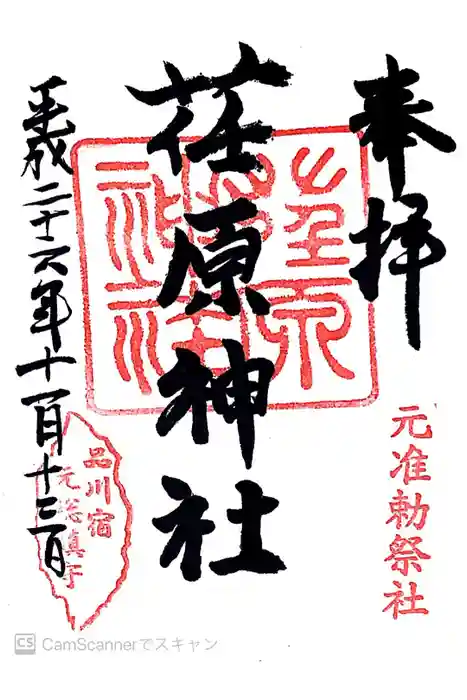 奉拝
元准勅祭社
荏原神社
平成二十六年十一月十三日
品川宿
元総鎮守
CS CamScannerでスキャン